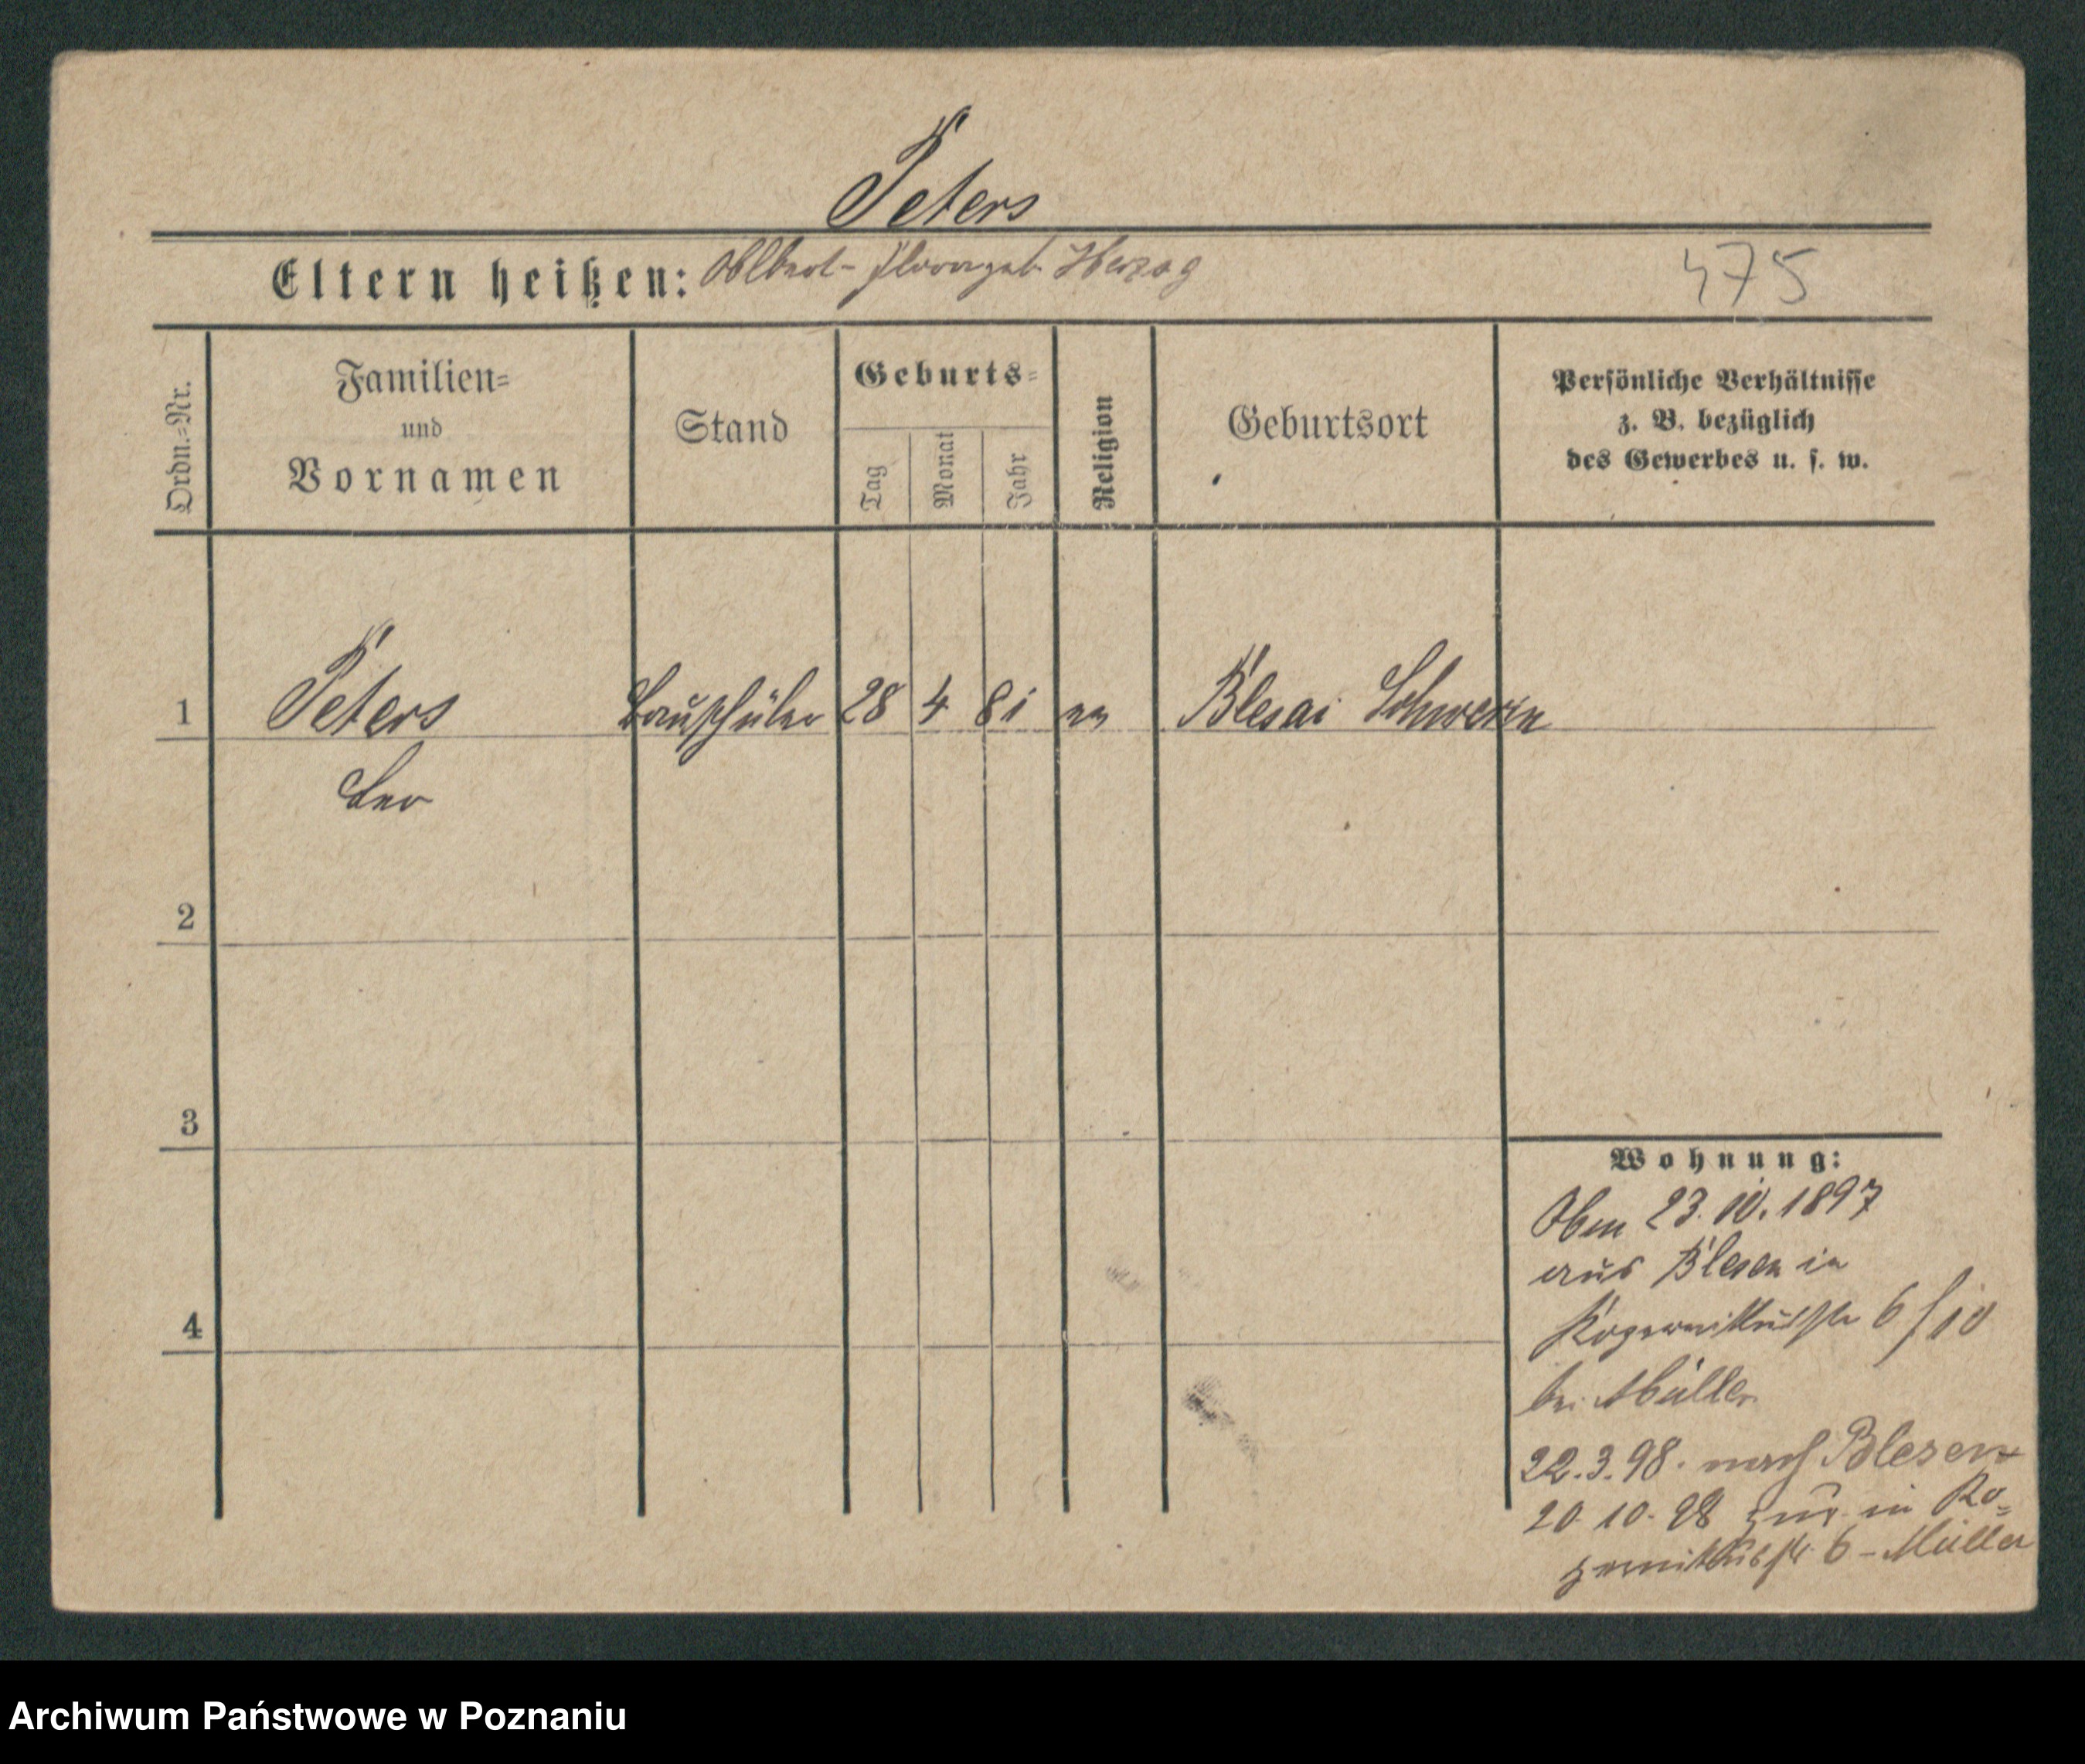 Peters
Eltern heißen: Albert - geb. Herzog
475
Ordn.=Nr.
Familien=
und
Vornamen
Stand
Geburts=
Tag
Monat
Jahr
Religion
Geburtsort
Persönliche Verhältnisse
z. B. bezüglich
des Gewerbes u. s. w.
1 Peters Bauschüler 28 4 81 Schwerin
Leo
2
3
4
Wohnung:
23.10.1897
aus Blesen in
6/10
bei Müller
22.3.98. nach Blesen
20.10.98 in
6 - Müller
Archiwum Państwowe w Poznaniu